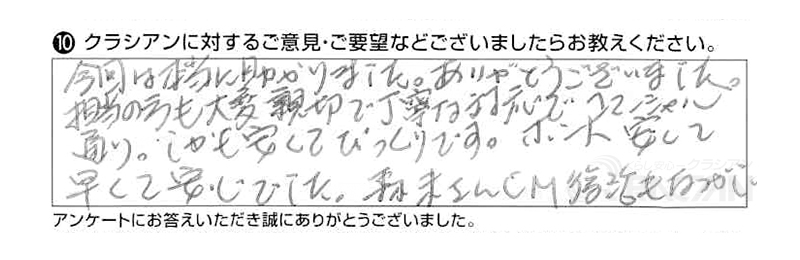 ⑩ クラシアンに対するご意見・ご要望などございましたらお教えください。
今回は本当に助かりました。ありがとうございました。
担当の方も大変親切で丁寧な対応でコマーシャル
通り。しかも安くてびっくりです。ホント安くて
早くて安心でした。森末さんCM
アンケートにお答えいただき誠にありがとうございました。